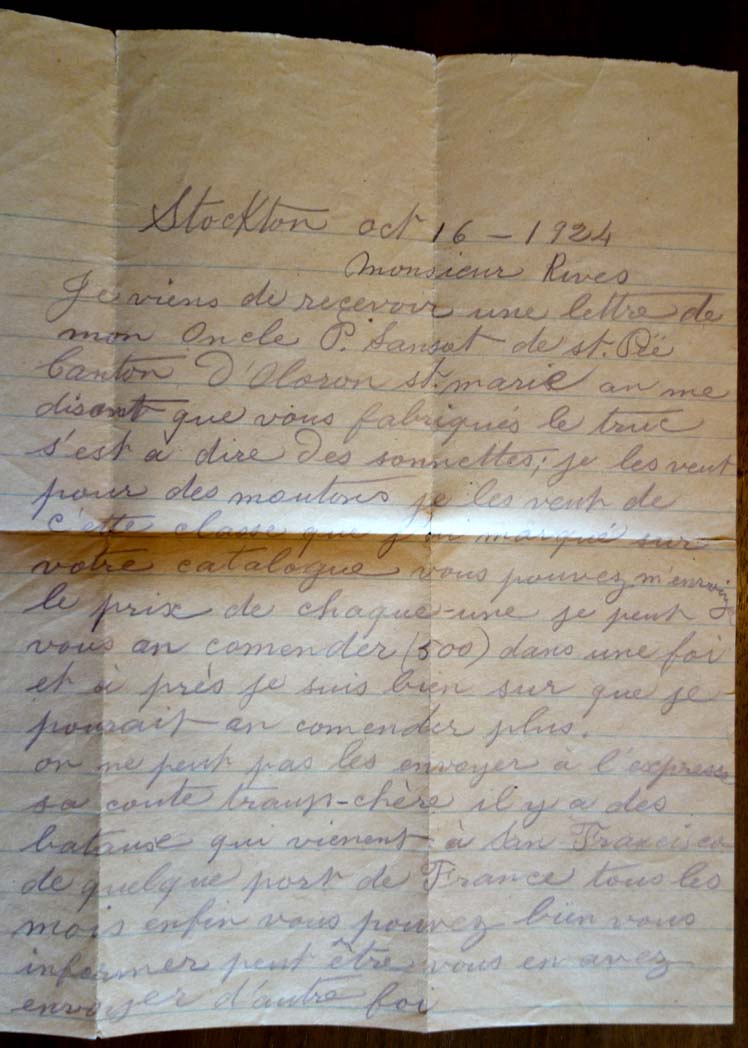 Stockton oct 16 - 1924
Monsieur Rives
Je viens de reçevoir une lettre de
mon Oncle P. Sansot de st. Pée
Canton D'Oloron st. marie an me
disant que vous fabriqués le truc
s'est à dire des sonnettes; je les veut
pour des moutons je les veut de
c'ette classe que j'ai marqué sur
votre catalogue vous pouvez m'envoiyer
le prix de chaque-une je peut
vous an comender (500) dans une foi
et à près je suis bien sur que je
pourait an comender plus.
on ne peut pas les envoyer à l'expresse
sa coute traup-chère il y a des
bataux qui vienent à San Francisco
de quelque port de France tous les
mois enfin vous pouvez bien vous
informer peut être vous en avez
envoyer d'autre foi